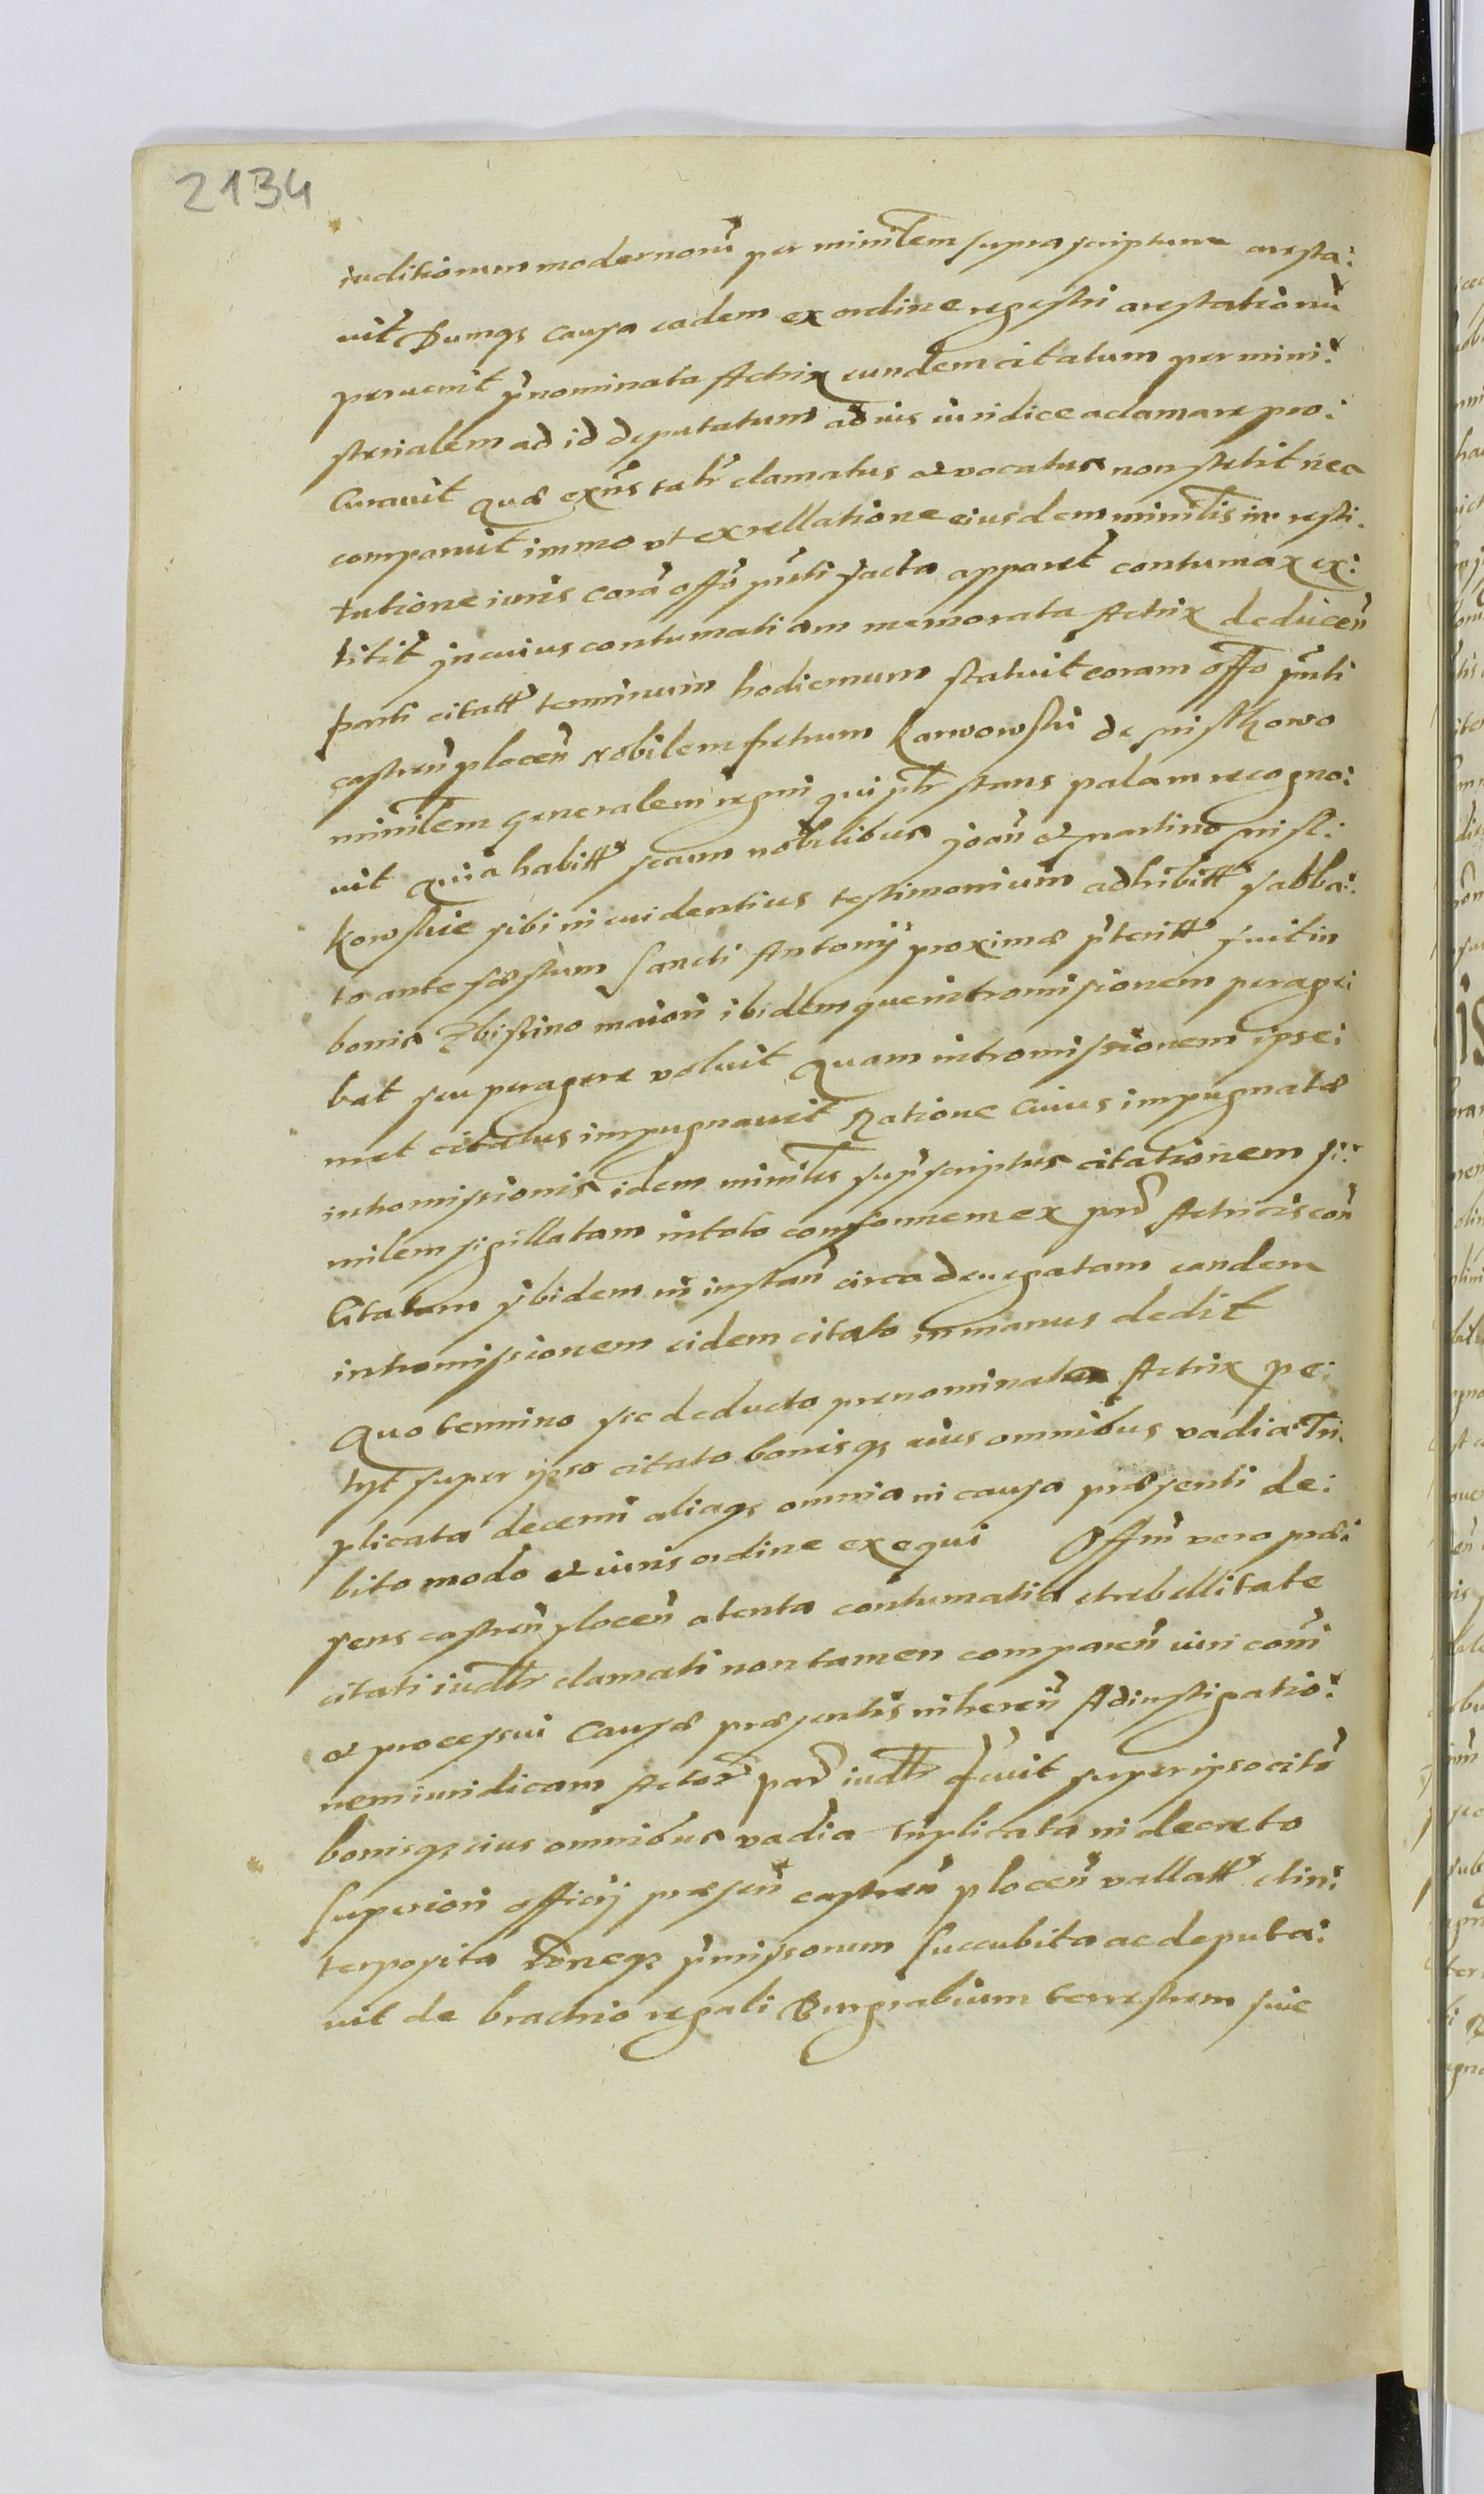 2134
iuditiorum modernorũ per minlem suprascriptum aresta:
uit Dumqȝ causa eadem ex ordine regestri arestationũ
peruenit p̃nominata Actrix eundem citatum per mini:
sterialem ad id deputatum ad ius iuridice aclamare pro:
Curauit qui clamatus et vocatus non stetit nec
comparuit immo vt ex rellatione eiusdem minilis in resti:
tutione iuris corã offõ p̃nti facta apparet contumax ex:
titit in cuius contumatiam memorata Actrix deducen̄
parti citatӕ terminum hodiernum statuit coram offõ p̃nti
castren̄ plocen̄ Nobilem petrum Karwowski de
minilem generalem regni qui p̃tr stans palam recogno:
uit Quia habitis secum nobilibus joan̄ et martino
kowskie sibi in euidentius testimonium adhibitis sabba:
to ante fӕstum Sancti Antonij proximӕ p̃terito fuit in
bonis maiori ibidemque intromissionem perage:
bat seu peragere voluit Quam intromissionem ipse:
met citatus impugnauit Ratione Cuius impugnatӕ
intromissionis idem minilis sup̃scriptus citationem si:
milem sigillatam in toto conformem ex parte Actricis con̄
Citatam ibidem in instan̄ circa denegatam eandem
intromissionem eidem citato in manus dedit
Quo termino sic deducto prenominata Actrix pe:
tyt super ipso citato bonisqȝ eius omnibus vadia Tri:
plicata decerni aliaqȝ omnia in causa prӕsenti de:
bito modo et iuris ordine exequi Offm̄ vero prӕ:
sens castren̄ plocen̄ atenta contumatia et rebellitate
citati iudtr clamati non tamen comparen̄ iuri com̄i
et processui Causӕ prӕsentis inheren̄ Ad instigatio:
nem iuridicam Actorӕ part iudtr decreuit super ipso citõ
bonisqȝ eius omnibus vadia triplicata in decreto
Superiori officij prӕsen̄ castren̄ plocen̄ vallata et in:
terposita p̃missorum Succubita ac deputa:
uit de brachio regali Burgrabium terrestrem siue